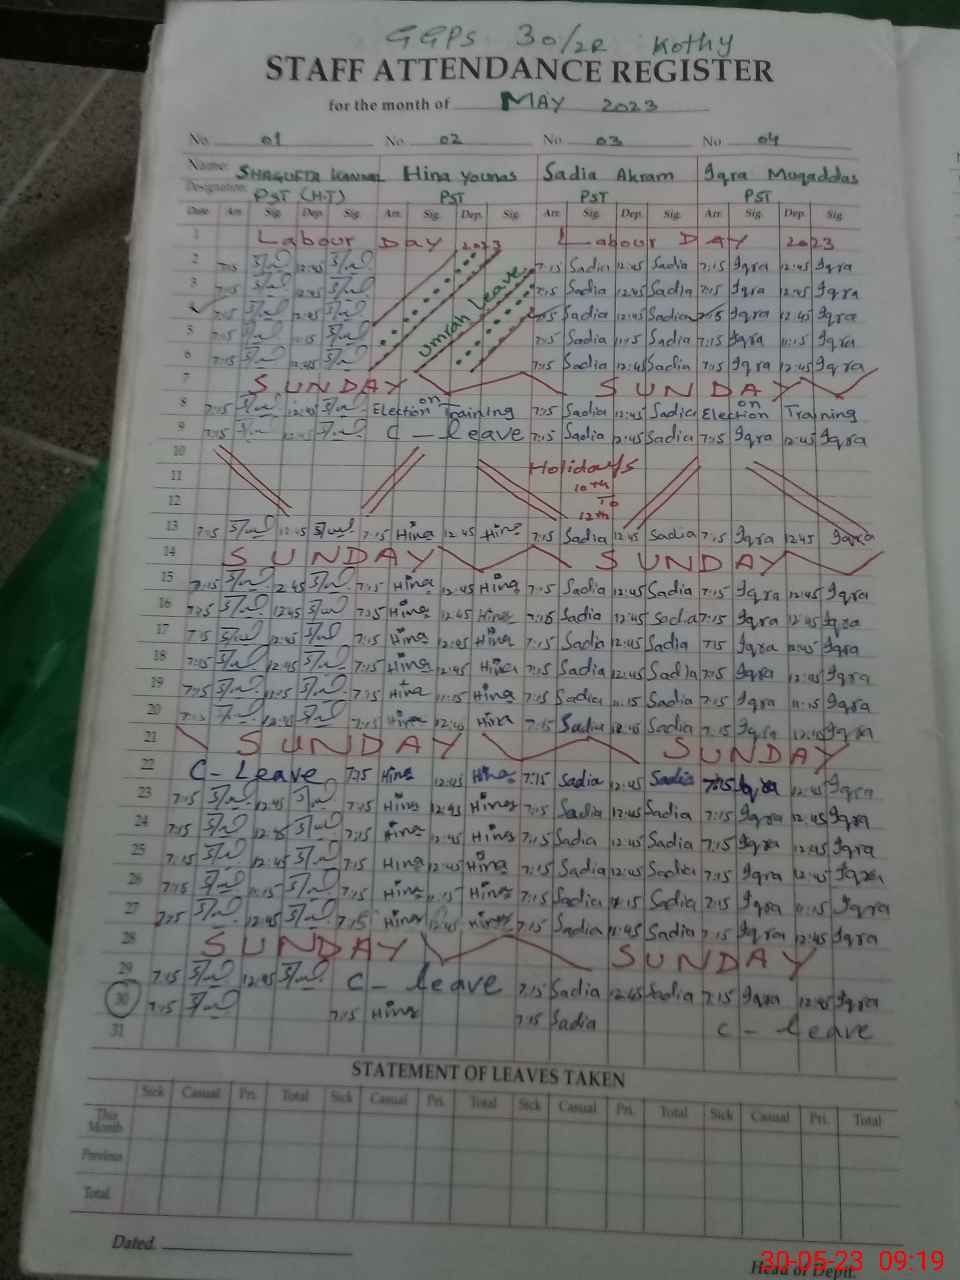 GGPS 30/2R Kothy
STAFF ATTENDANCE REGISTER
for the month of MAY 2023
No. 01 No. 02 No. 03 No. 04
Name: SHAGUFTA KANWAL Hina Younas Sadia Akram Iqra Muqaddas
Designation: PST (H.T) PST PST PST
Date Arr. Sig. Dep. Sig. Arr. Sig. Dep. Sig. Arr. Sig. Dep. Sig. Arr. Sig. Dep. Sig.
1 Labour DAY 2023 Labour DAY 2023
2 7:15 12:45 7:15 Sadia 12:45 Sadia 7:15 Iqra 12:45 Iqra
3 7:15 12:45 Umrah Leave 7:15 Sadia 12:45 Sadia 7:15 Iqra 12:45 Iqra
4 7:15 12:45 7:15 Sadia 12:45 Sadia 7:15 Iqra 12:45 Iqra
5 7:15 11:15 7:15 Sadia 11:15 Sadia 7:15 Iqra 11:15 Iqra
6 7:15 12:45 7:15 Sadia 12:45 Sadia 7:15 Iqra 12:45 Iqra
7 SUNDAY SUNDAY
8 7:15 12:45 Election on Training 7:15 Sadia 12:45 Sadia Election on Training
9 7:15 12:45 C - leave 7:15 Sadia 12:45 Sadia 7:15 Iqra 12:45 Iqra
10 Holidays
11 10th
12 To 12th
13 7:15 12:45 7:15 Hina 12:45 Hina 7:15 Sadia 12:45 Sadia 7:15 Iqra 12:45 Iqra
14 SUNDAY SUNDAY
15 7:15 12:45 7:15 Hina 12:45 Hina 7:15 Sadia 12:45 Sadia 7:15 Iqra 12:45 Iqra
16 7:15 12:45 7:15 Hina 12:45 Hina 7:15 Sadia 12:45 Sadia 7:15 Iqra 12:45 Iqra
17 7:15 12:45 7:15 Hina 12:45 Hina 7:15 Sadia 12:45 Sadia 7:15 Iqra 12:45 Iqra
18 7:15 12:45 7:15 Hina 12:45 Hina 7:15 Sadia 12:45 Sadia 7:15 Iqra 12:45 Iqra
19 7:15 11:15 7:15 Hina 11:15 Hina 7:15 Sadia 11:15 Sadia 7:15 Iqra 11:15 Iqra
20 7:15 12:45 7:15 Hina 12:45 Hina 7:15 Sadia 12:45 Sadia 7:15 Iqra 12:45 Iqra
21 SUNDAY SUNDAY
22 C - Leave 7:15 Hina 12:45 Hina 7:15 Sadia 12:45 Sadia 7:15 Iqra 12:45 Iqra
23 7:15 12:45 7:15 Hina 12:45 Hina 7:15 Sadia 12:45 Sadia 7:15 Iqra 12:45 Iqra
24 7:15 12:45 7:15 Hina 12:45 Hina 7:15 Sadia 12:45 Sadia 7:15 Iqra 12:45 Iqra
25 7:15 12:45 7:15 Hina 12:45 Hina 7:15 Sadia 12:45 Sadia 7:15 Iqra 12:45 Iqra
26 7:15 11:15 7:15 Hina 11:15 Hina 7:15 Sadia 11:15 Sadia 7:15 Iqra 11:15 Iqra
27 7:15 12:45 7:15 Hina 12:45 Hina 7:15 Sadia 12:45 Sadia 7:15 Iqra 12:45 Iqra
28 SUNDAY SUNDAY
29 7:15 12:45 C - leave 7:15 Sadia 12:45 Sadia 7:15 Iqra 12:45 Iqra
30 7:15 7:15 Hina 7:15 Sadia C - leave
31
STATEMENT OF LEAVES TAKEN
Sick Casual Pri. Total Sick Casual Pri. Total Sick Casual Pri. Total Sick Casual Pri. Total
This Month
Previous
Total
Dated.
Head of Deptt.
30-05-23 09:19